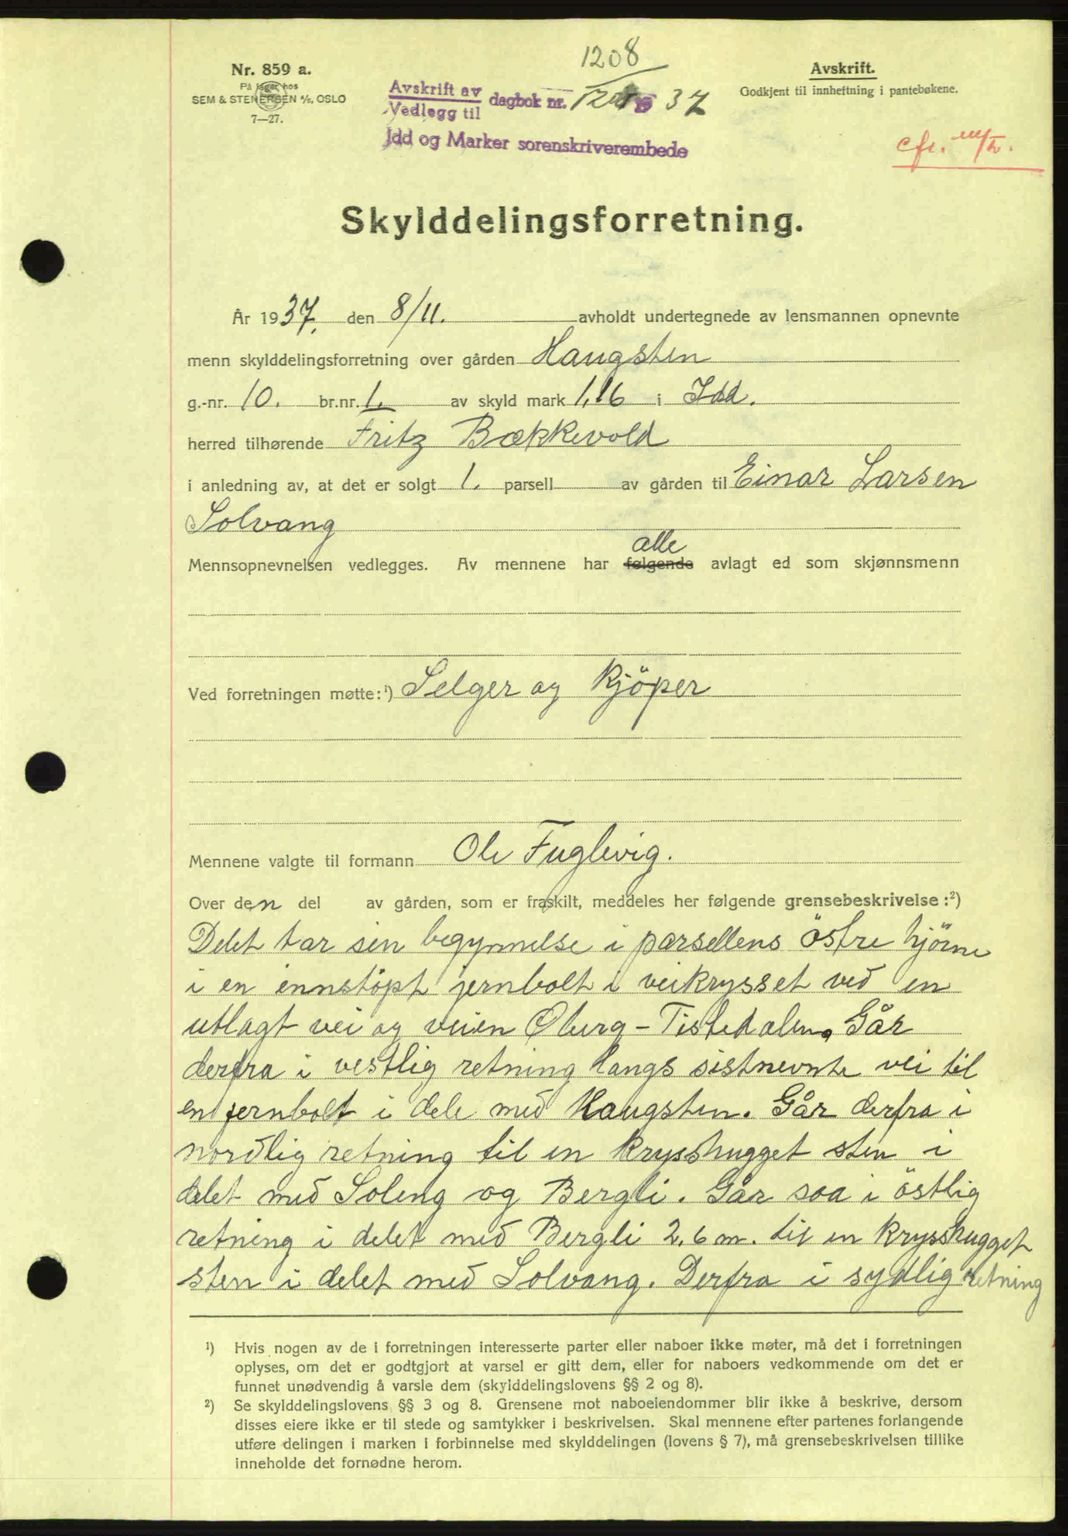 1208
Nr. 859 a.
På lager hos
SEM & STENERSEN A/S, OSLO
7—27.
Avskrift av
Vedlegg til
dagbok nr. 37
Idd og Marker sorenskriverembede
Avskrift.
Godkjent til innheftning i pantebøkene.
cfr.
Skylddelingsforretning.
År 1937. den 8/11. avholdt undertegnede av lensmannen opnevnte
menn skylddelingsforretning over gården Haugsten
g.-nr. 10. br.nr. 1. av skyld mark 1,16 i Idd.
herred tilhørende Fritz Bækkevold
i anledning av, at det er solgt 1. parsell av gården til Einar Larsen
Solvang
alle
Mennsopnevnelsen vedlegges. Av mennene har følgende avlagt ed som skjønnsmenn
Ved forretningen møtte:¹) Selger og Kjöper
Mennene valgte til formann Ole Fuglevig.
Over den del av gården, som er fraskilt, meddeles her følgende grensebeskrivelse:²)
Delet tar sin begynnelse i parsellens östre hjörne
i en innstöpt jernbolt i veikrysset ved en
utlagt vei og veien Öberg - Tistedalen. Går
derfra i vestlig retning langs sistnevnte vei til
en jernbolt i dele med Haugsten. Går derfra i
nordlig retning til en krysshugget sten i
delet med Soleng og Bergli. Går saa i östlig
retning i delet med Bergli 2,6 m. til en krysshugget
sten i delet med Solvang. Derfra i sydlig retning
¹) Hvis nogen av de i forretningen interesserte parter eller naboer ikke møter, må det i forretningen
oplyses, om det er godtgjort at varsel er gitt dem, eller for naboers vedkommende om det er
funnet unødvendig å varsle dem (skylddelingslovens §§ 2 og 8).
²) Se skylddelingslovens §§ 3 og 8. Grensene mot naboeiendommer blir ikke å beskrive, dersom
disses eiere ikke er til stede og samtykker i beskrivelsen. Skal mennene efter partenes forlangende
utføre delingen i marken i forbinnelse med skylddelingen (lovens § 7), må grensebeskrivelsen tillike
inneholde det fornødne herom.